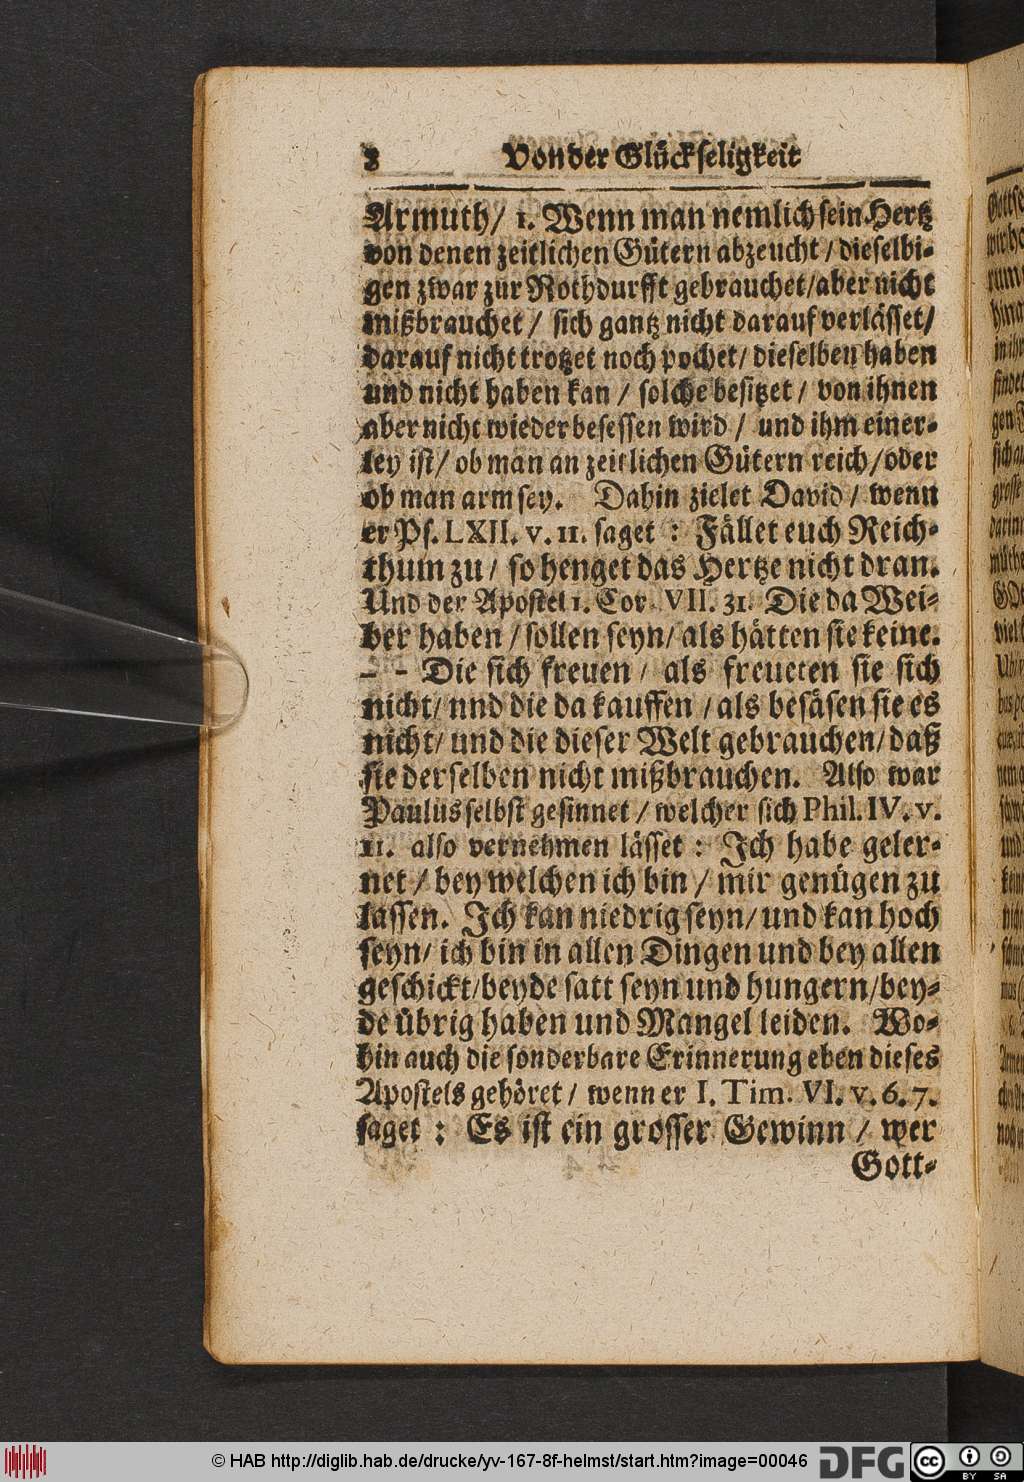 8 Von der Glückseligkeit
Armuth/ 1. Wenn man nemlich sein Hertz
von denen zeitlichen Gütern abzeucht/ dieselbi-
gen zwar zur Nothdurfft gebrauchet/aber nicht
mißbrauchet/ sich gantz nicht darauf verlässet/
darauf nicht trotzet noch pochet/ dieselben haben
und nicht haben kan/ solche besitzet/ von ihnen
aber nicht wieder besessen wird/ und ihm einer-
ley ist/ ob man an zeitlichen Gütern reich/oder
ob man arm sey. Dahin zielet David/ wenn
er Ps. LXII. v. 11. saget: Fället euch Reich-
thum zu/ so henget das Hertze nicht dran.
Und der Apostel 1. Cor. VII. 31. Die da Wei-
ber haben/ sollen seyn/ als hätten sie keine.
- - Die sich freuen/ als freueten sie sich
nicht/ nnd die da kauffen/als besäsen sie es
nicht/ und die dieser Welt gebrauchen/ daß
sie derselben nicht mißbrauchen. Also war
Paulus selbst gesinnet/ welcher sich Phil. IV. v.
11. also vernehmen lässet: Ich habe geler-
net/ bey welchen ich bin/ mir genügen zu
lassen. Ich kan niedrig seyn/ und kan hoch
seyn/ ich bin in allen Dingen und bey allen
geschickt/beyde satt seyn und hungern/bey-
de übrig haben und Mangel leiden. Wo-
hin auch die sonderbare Erinnerung eben dieses
Apostels gehöret/ wenn er I. Tim. VI. v. 6. 7.
saget: Es ist ein grosser Gewinn/ wer
Gott-
© HAB http://diglib.hab.de/drucke/yv-167-8f-helmst/start.htm?image=00046
DFG
cc BY SA